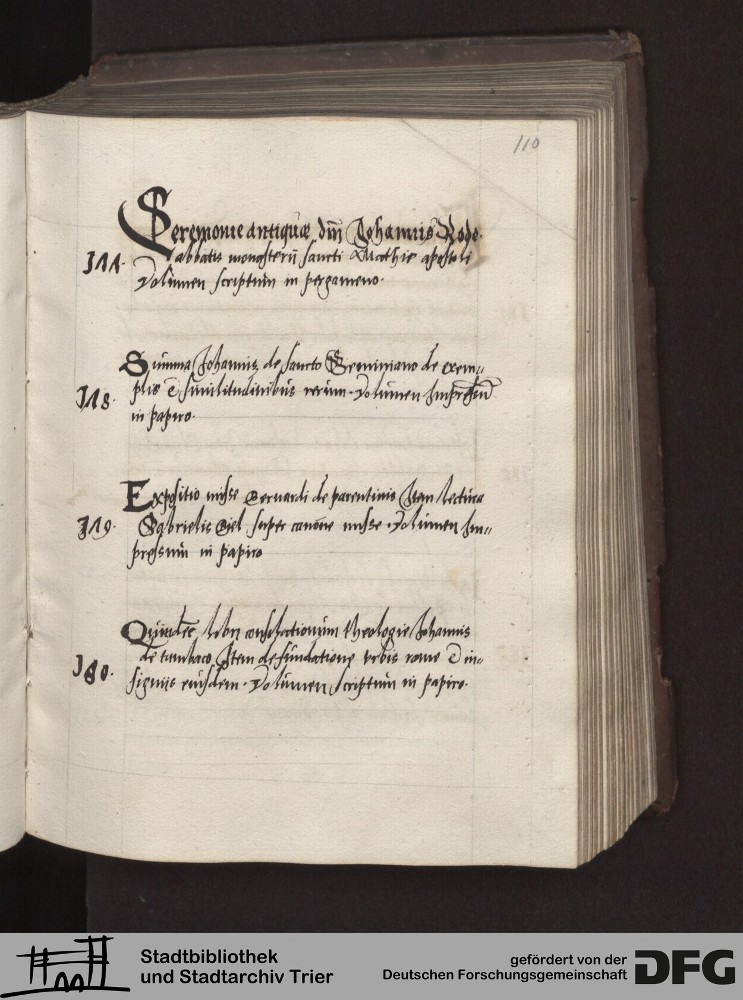 110
Ceremonie antiquae dm̄ Johannis Rode
I77. abbatis monasterii sancti Mathie apostoli
Volumen scriptum in pergameno.
Summa Johannis de sancto Geminiano de exem-
I78. plis & similitudinibus rerum. Volumen Impressū
in papiro.
Expositio misse Bernardi de parentinis Item lectura
I79. Gabrielis Biel super canone misse. Volumen Im-
pressum in papiro
Quindec̄ libri consolationum theologie Johannis
I80. de tambaco Item de fundatione vrbis rome & in-
signiis eiusdem. Volumen scriptum in papiro.
Stadtbibliothek
und Stadtarchiv Trier
gefördert von der
Deutschen Forschungsgemeinschaft
DFG